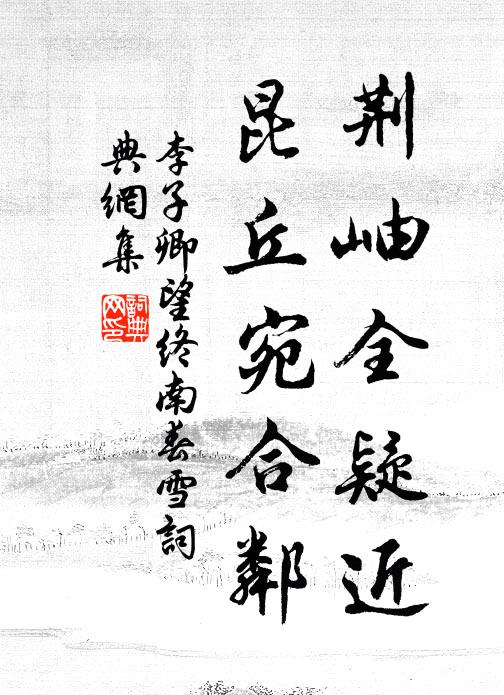 荆岫全疑近
昆丘宛合鄰
李子卿望終南春雪詞
典網集
詞典
网印